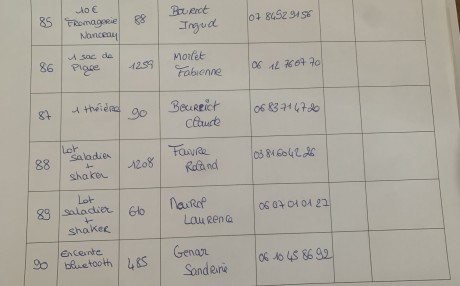 85 10€ Fromagerie Nanceay 88 Bourrot Ingrid 07 84529156
86 1 sac de Pique 1259 Morlet Fabienne 06 12 7607 70
87 1 théière 90 Bourrict Claude 06 83 71 47 20
88 Lot saladier + shaker 1208 Faivre Roland 03 81 60 42 26
89 Lot saladier + shaker 610 Laurence 06 07 01 01 27
90 Enceinte bluetooth 485 Genar Sandrine 06 10 45 86 92